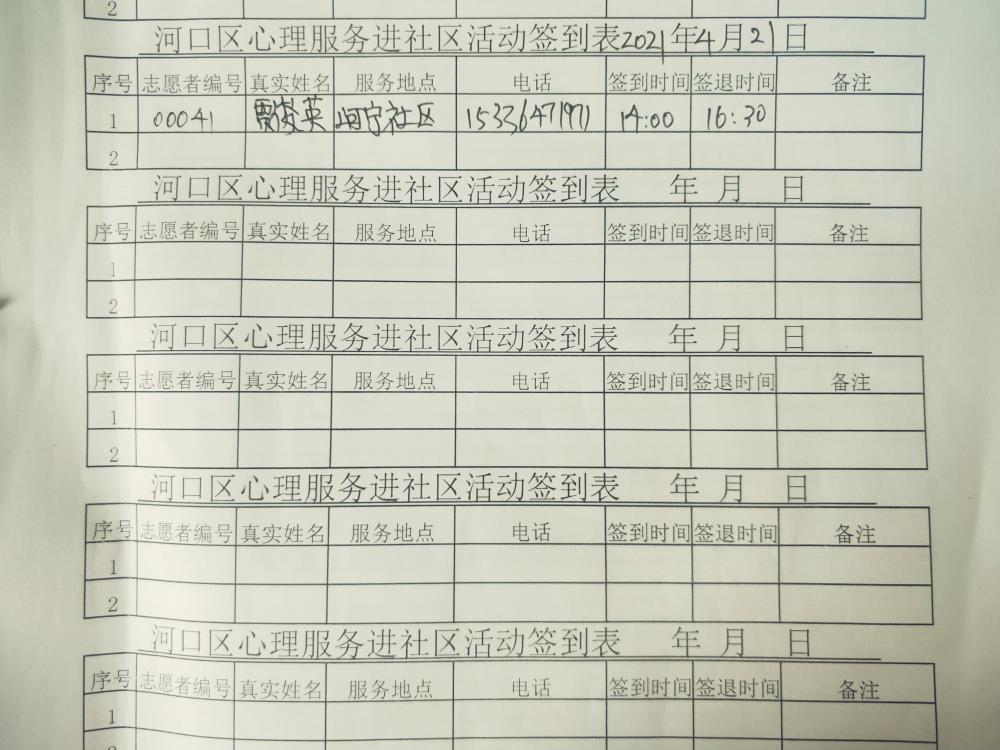 2
河口区心理服务进社区活动签到表2021年4月21日
序号 志愿者编号 真实姓名 服务地点 电话 签到时间 签退时间 备注
1 00041 贾俊英 河宁社区 15336471971 14:00 16:30
2
河口区心理服务进社区活动签到表 年 月 日
序号 志愿者编号 真实姓名 服务地点 电话 签到时间 签退时间 备注
1
2
河口区心理服务进社区活动签到表 年 月 日
序号 志愿者编号 真实姓名 服务地点 电话 签到时间 签退时间 备注
1
2
河口区心理服务进社区活动签到表 年 月 日
序号 志愿者编号 真实姓名 服务地点 电话 签到时间 签退时间 备注
1
2
河口区心理服务进社区活动签到表 年 月 日
序号 志愿者编号 真实姓名 服务地点 电话 签到时间 签退时间 备注
1